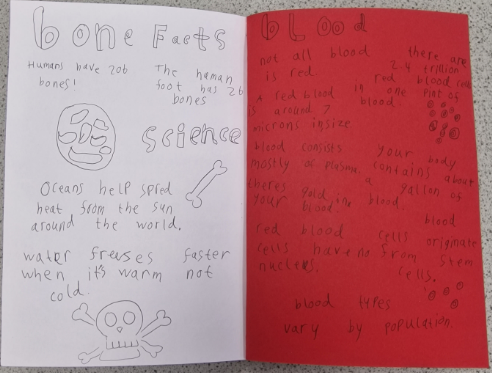 bone Facts
Humans have 206
bones!
The human
foot has 26
bones
science
Oceans help spred
heat from the sun
around the world.
water freuses faster
when it's warm not
cold.
blood
not all blood
is red
there are
2.4 trillion
red blood
in one
blood.
a red blood
is around 7
microns insize
blood consists
mostly of plasma.
thores gold in
your blood.
your body
contains about
a gallon of
blood.
red blood cells
cells have no
nucltes.
blood
originate
from stem
cells.
blood types
vary by population.